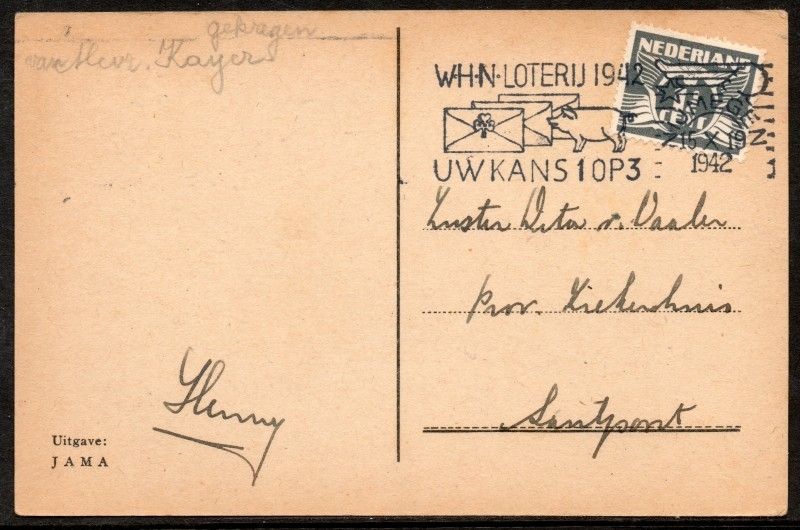 gekregen
van Mevr. Kayer
W·H·N·LOTERIJ 1942
UW KANS 1 OP 3
NEDERLAND
NIJMEGEN
15 X 19
1942
Zuster Dita v. Daalen
Prov. Ziekenhuis
Santpoort
Henny
Uitgave:
JAMA